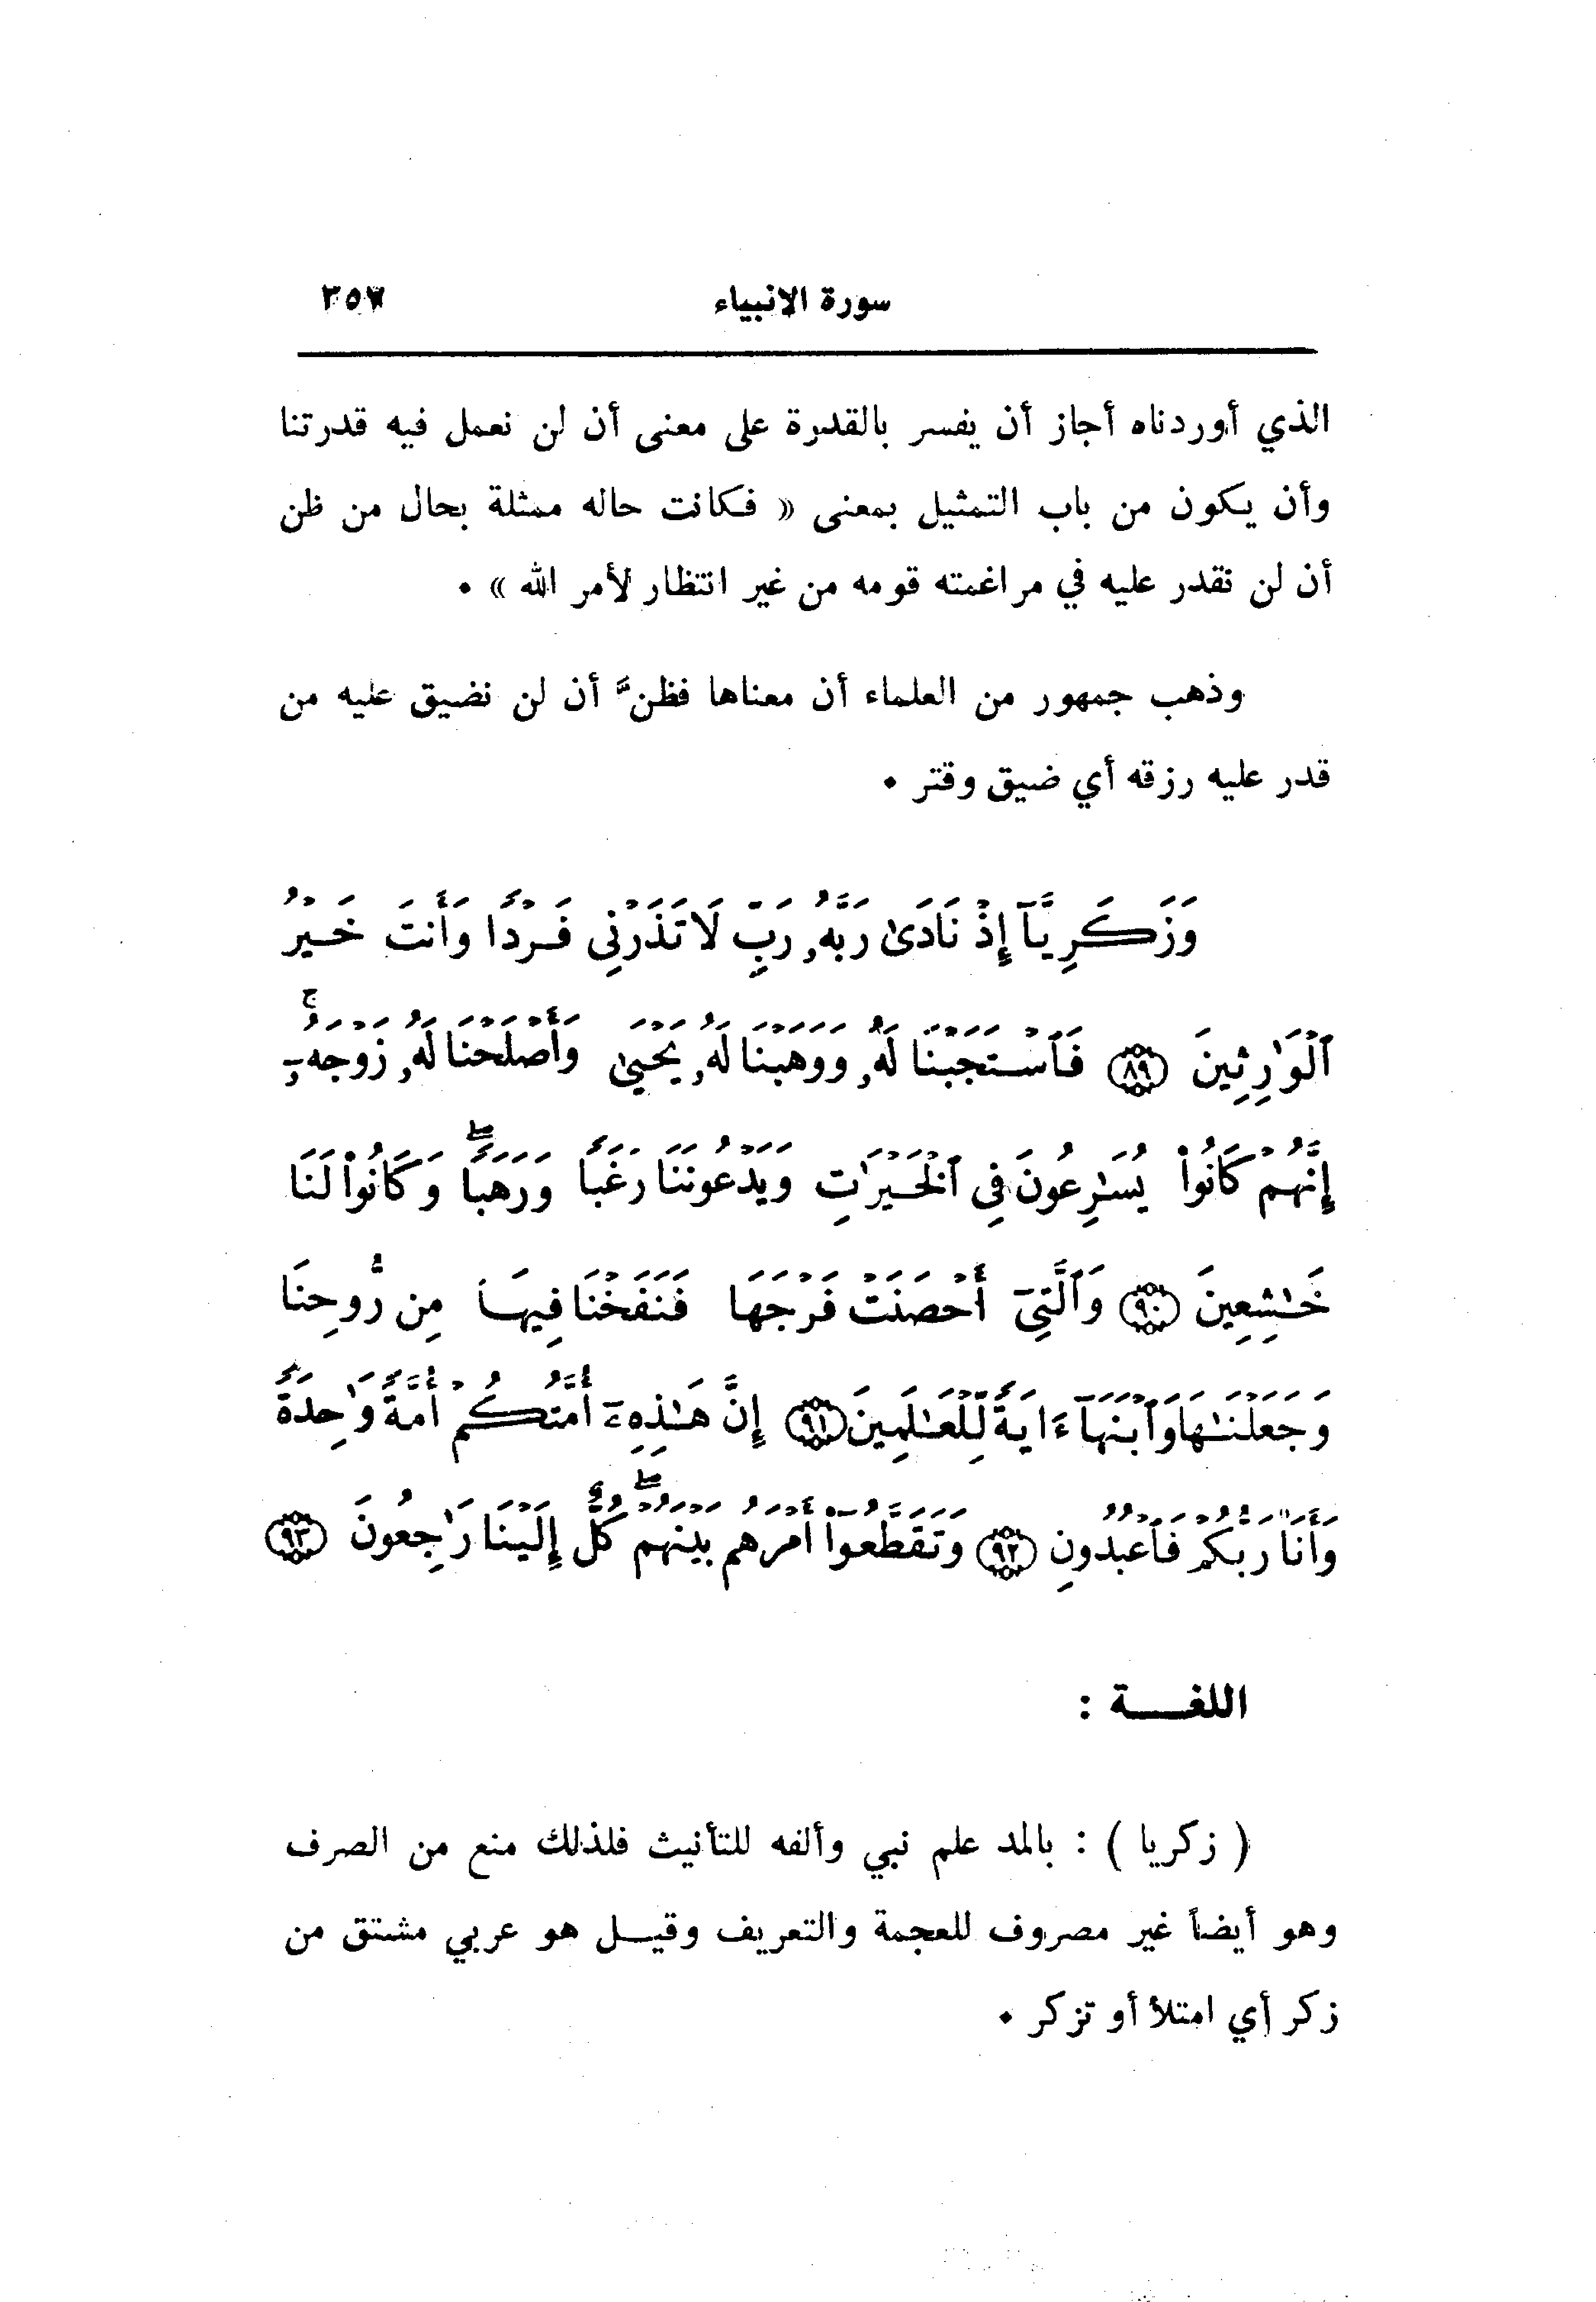 سورة الانبياء ٣٥٧
الذي أوردناه أجاز أن يفسر بالقدرة على معنى أن لن نعمل فيه قدرتنا
وأن يكون من باب التمثيل بمعنى « فكانت حاله ممثلة بحال من ظن
أن لن نقدر عليه في مراغمته قومه من غير انتظار لأمر الله » ٠
وذهب جمهور من العلماء أن معناها فظنَّ أن لن نضيق عليه من
قدر عليه رزقه أي ضيق وقتر ٠
وَزَكَرِيَّآ إِذْ نَادَىٰ رَبَّهُۥ رَبِّ لَا تَذَرْنِى فَرْدًا وَأَنتَ خَيْرُ
ٱلْوَٰرِثِينَ ﴿٨٩﴾ فَٱسْتَجَبْنَا لَهُۥ وَوَهَبْنَا لَهُۥ يَحْيَىٰ وَأَصْلَحْنَا لَهُۥ زَوْجَهُۥٓ ۚ
إِنَّهُمْ كَانُوا۟ يُسَٰرِعُونَ فِى ٱلْخَيْرَٰتِ وَيَدْعُونَنَا رَغَبًا وَرَهَبًا ۖ وَكَانُوا۟ لَنَا
خَٰشِعِينَ ﴿٩٠﴾ وَٱلَّتِىٓ أَحْصَنَتْ فَرْجَهَا فَنَفَخْنَا فِيهَا مِن رُّوحِنَا
وَجَعَلْنَٰهَا وَٱبْنَهَآ ءَايَةً لِّلْعَٰلَمِينَ ﴿٩١﴾ إِنَّ هَٰذِهِۦٓ أُمَّتُكُمْ أُمَّةً وَٰحِدَةً
وَأَنَا۠ رَبُّكُمْ فَٱعْبُدُونِ ﴿٩٢﴾ وَتَقَطَّعُوٓا۟ أَمْرَهُم بَيْنَهُمْ ۖ كُلٌّ إِلَيْنَا رَٰجِعُونَ ﴿٩٣﴾
اللغـــة :
( زكريا ) : بالمد علم نبي وألفه للتأنيث فلذلك منع من الصرف
وهو أيضاً غير مصروف للعجمة والتعريف وقيـل هو عربي مشتق من
زكر أي امتلأ أو تزكر ٠